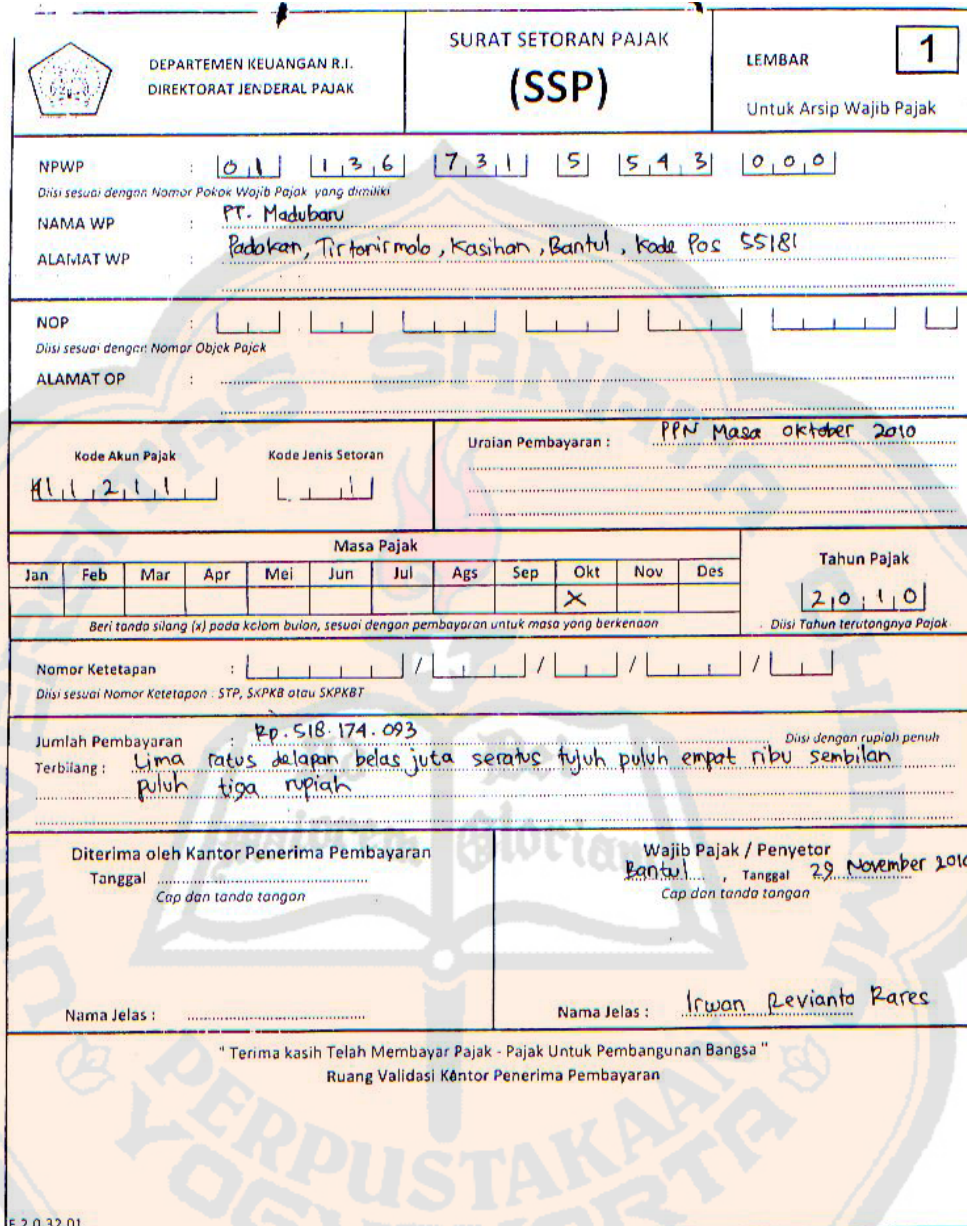 DEPARTEMEN KEUANGAN R.I.
DIREKTORAT JENDERAL PAJAK
SURAT SETORAN PAJAK
(SSP)
LEMBAR 1
Untuk Arsip Wajib Pajak
NPWP : 01 136 731 5 543 000
Diisi sesuai dengan Nomor Pokok Wajib Pajak yang dimiliki
NAMA WP : PT. Madubaru
ALAMAT WP : Padokan, Tirtonirmolo, Kasihan, Bantul, Kode Pos 55181
NOP :
Diisi sesuai dengan Nomor Objek Pajak
ALAMAT OP :
Kode Akun Pajak Kode Jenis Setoran
411211
Uraian Pembayaran : PPN Masa Oktober 2010
Masa Pajak
Jan Feb Mar Apr Mei Jun Jul Ags Sep Okt Nov Des
X
Beri tanda silang (x) pada kolom bulan, sesuai dengan pembayaran untuk masa yang berkenaan
Tahun Pajak
2010
Diisi Tahun terutangnya Pajak
Nomor Ketetapan : / / / /
Diisi sesuai Nomor Ketetapan : STP, SKPKB atau SKPKBT
Jumlah Pembayaran : Rp. 518.174.093 Diisi dengan rupiah penuh
Terbilang : Lima ratus delapan belas juta seratus tujuh puluh empat ribu sembilan
puluh tiga rupiah
Diterima oleh Kantor Penerima Pembayaran
Tanggal
Cap dan tanda tangan
Nama Jelas :
Wajib Pajak / Penyetor
Bantul, Tanggal 29 November 2010
Cap dan tanda tangan
Nama Jelas : Irwan Revianto Rares
" Terima kasih Telah Membayar Pajak - Pajak Untuk Pembangunan Bangsa "
Ruang Validasi Kantor Penerima Pembayaran
F.2.0.32.01
UNIVERSITAS SANATA DHARMA
PERPUSTAKAAN
YOGYAKARTA